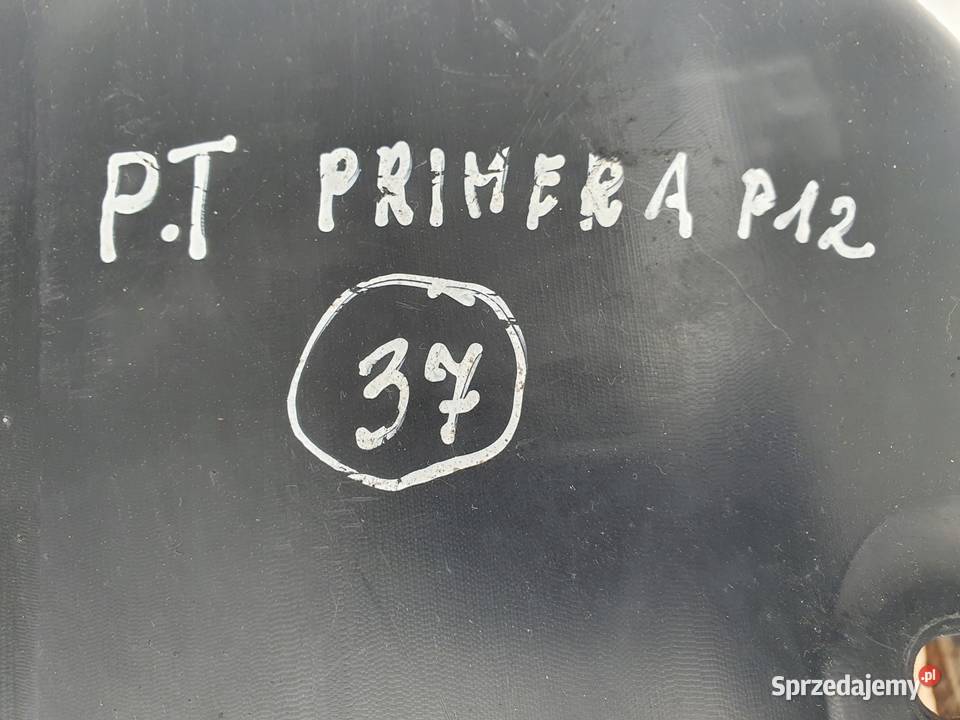 P.T PRIMERA P12
37
Sprzedajemy.pl